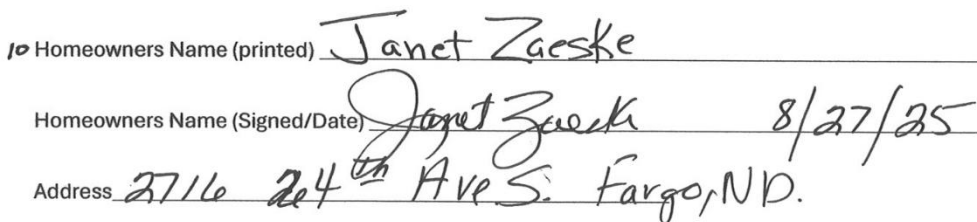 10 Homeowners Name (printed) Janet Zaeske
Homeowners Name (Signed/Date) Janet Zaeske 8/27/25
Address 2716 24th Ave S. Fargo, ND.